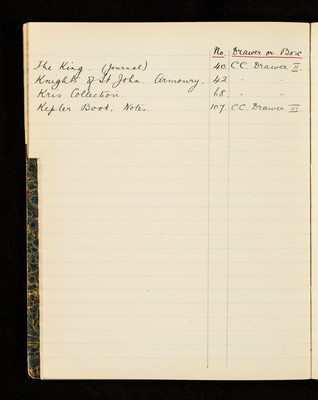 No. Drawer or Box
The King. (Journal) 40 C.C. Drawer II
Knights of St John. Armoury. 42 " "
Kris Collection 68 " "
Kepler Book, Notes. 107 C.C. Drawer III